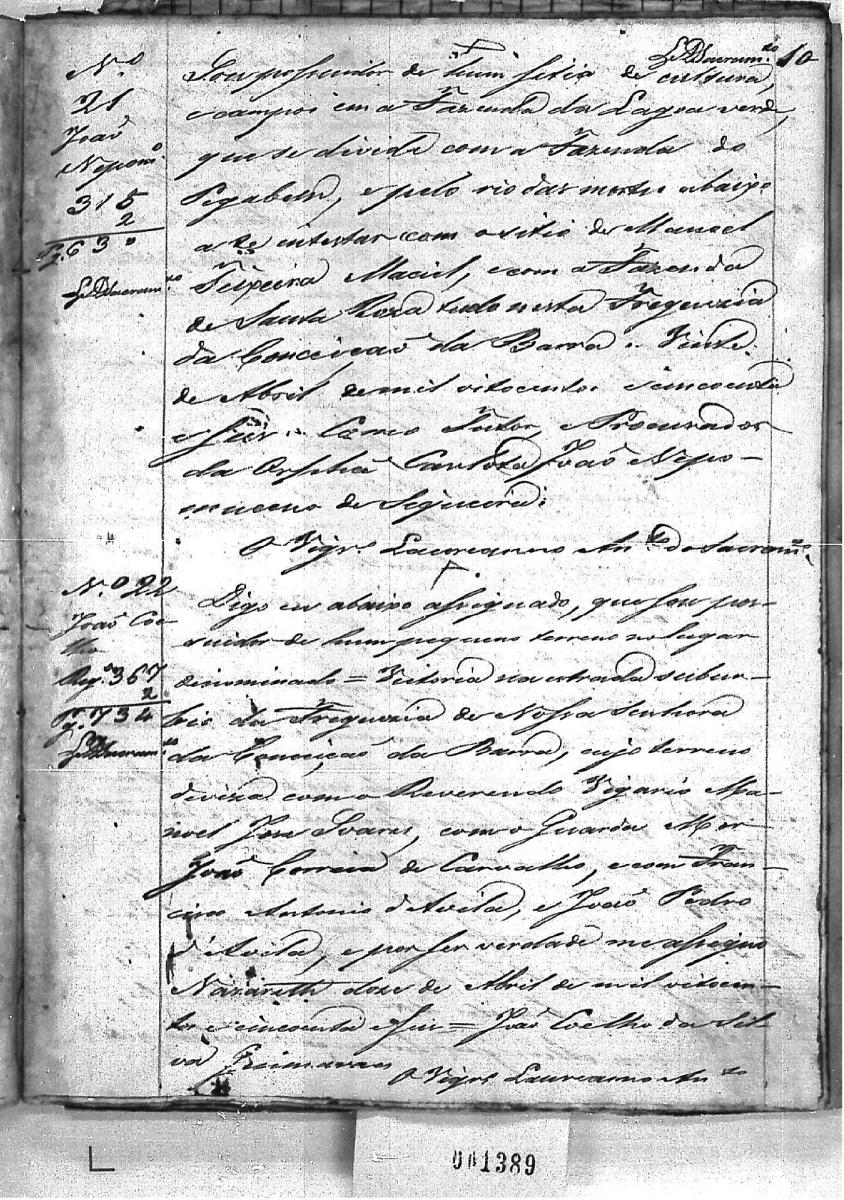 L. D. Sacram.to 10
N.º
21
João
Nepom.o
315
2
Pg. 630
L. D. Sacram.to
Sou possuidor de hum sitio de cultura,
e campos em a Fazenda da Lagoa verde,
que se divide com a Fazenda do
Pegabem, e pelo rio das mortes abaixo
a te entestar com o sitio de Manoel
Teixeira Maciel, e com a Fazenda
de Santa Roza tudo nesta Freguezia
da Conceicaõ da Barra e Vinte
de Abril de mil oitocentos e cincoenta
e seis = Como Tutor, e Procurador
da Orphã Carlota João Nepo-
muceno de Sequeira:
O Vigr.o Laureanno An.to do Sacram.to
N.º 22
João Coe-
lho
Reg.º 367
2
Pg. 734
L. D. Sacram.to
Digo eu abaixo assignado, que sou pos-
suidor de hum pequeno terreno no lugar
denominado = Victoria na estrada subur-
bio da Freguezia de Nossa Senhora
da Conceiçaõ da Barra, cujo terreno
deviza com o Reverendo Vigario Ma-
noel Jose Soares, com o Guarda Mor
João Correia de Carvalho, e com Fran-
cisco Antonio d'Avila, e João Pedro
d'Avila, e por ser verdade me assigno
Nazareth doze de Abril de mil oitocen-
tos e cincoenta e seis = João Coelho da Sil-
va Guimaraes
O Vigr.o Laureanno An.to
001389